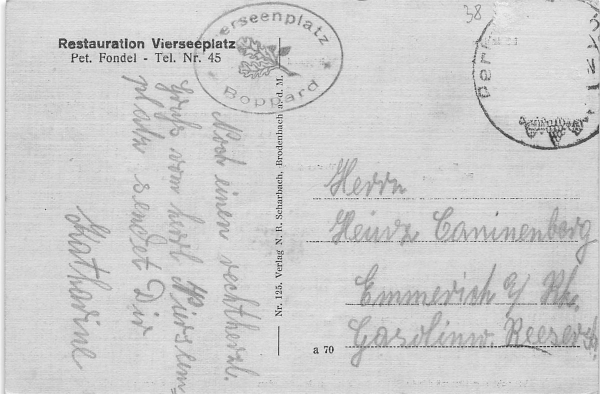 38
Restauration Vierseeplatz
Pet. Fondel - Tel. Nr. 45
Vierseenplatz
* Boppard *
Noch einen rechtherzl.
Gruß vom
platz sendet Dir
Katharine
Nr. 125. Verlag N. R. Scharbach, Brodenbach a. d. M.
Herrn
Heinz Caninenberg
Emmerich a/ Rh.
a 70